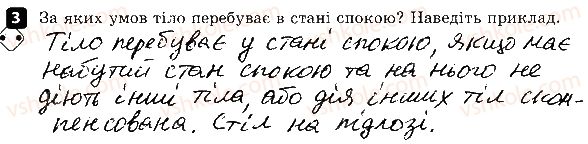 3 За яких умов тіло перебуває в стані спокою? Наведіть приклад.
Тіло перебуває у стані спокою, якщо має
набутий стан спокою та на нього не
діють інші тіла, або дія інших тіл ском-
пенсована. Стіл на підлозі.